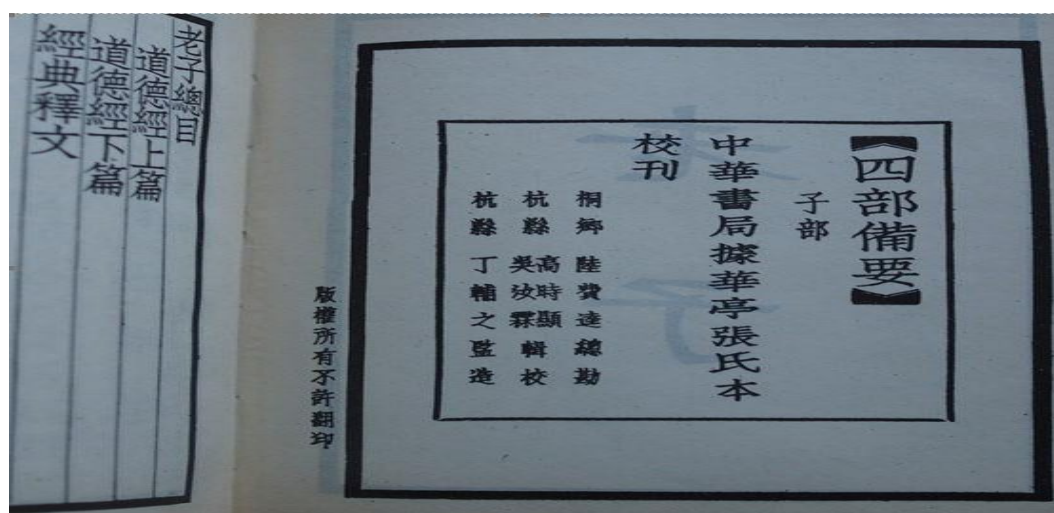 【四部備要】
子部
中華書局據華亭張氏本
校刊
桐鄉 陸費逵總勘
杭縣 高時顯
吳汝霖輯校
杭縣 丁輔之監造
版權所有不許翻印
老子總目
道德經上篇
道德經下篇
經典釋文